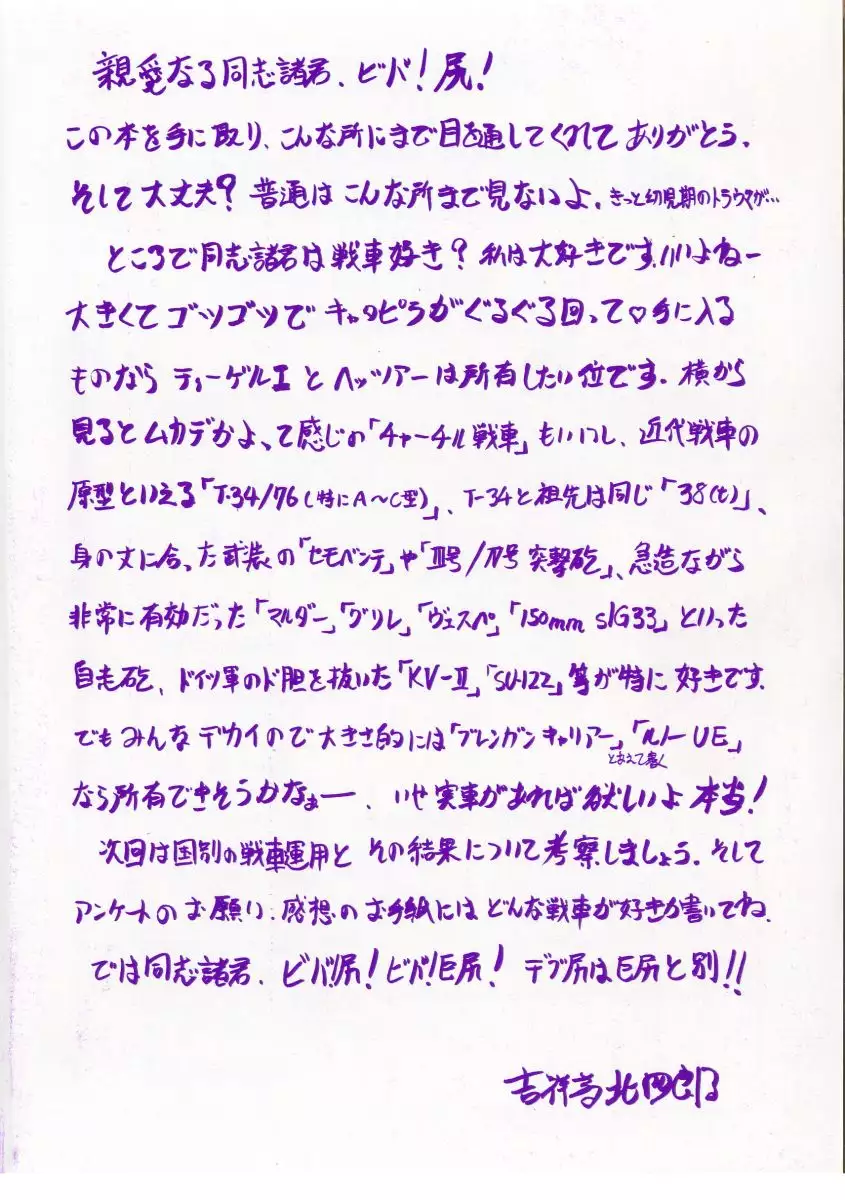 親愛なる同志諸君、ビバ!尻!
この本を手に取り、こんな所にまで目を通してくれてありがとう。
そして大丈夫?普通はこんな所まで見ないよ。きっと幼児期のトラウマが…
ところで同志諸君は戦車好き?私は大好きです。いいよねー
大きくてゴツゴツでキャタピラがぐるぐる回って♡手に入る
ものならティーゲルIとヘッツァーは所有したい位です。横から
見るとムカデかよ、って感じの「チャーチル戦車」もいいし、近代戦車の
原型といえる「T-34/76(特にA〜C型)」、T-34と祖先は同じ「38(t)」、
身の丈に合った武装の「セモベンテ」や「III号/IV号突撃砲」、急造ながら
非常に有効だった「マルダー」「グリレ」「ヴェスペ」「150mm sIG33」といった
自走砲、ドイツ軍のド胆を抜いた「KV-II」「SU-122」等が特に好きです。
でもみんなデカイので大きさ的には「ブレンガンキャリアー」「ルノーUE」
とあえて書く
なら所有できそうかなぁー、いや実車があれば欲しいよ本当!
次回は国別の戦車運用とその結果について考察しましょう。そして
アンケートのお願い、感想のお手紙にはどんな戦車が好きか書いてね。
では同志諸君、ビバ!尻!ビバ!巨尻!デブ尻は巨尻と別!!
吉祥寺北四郎